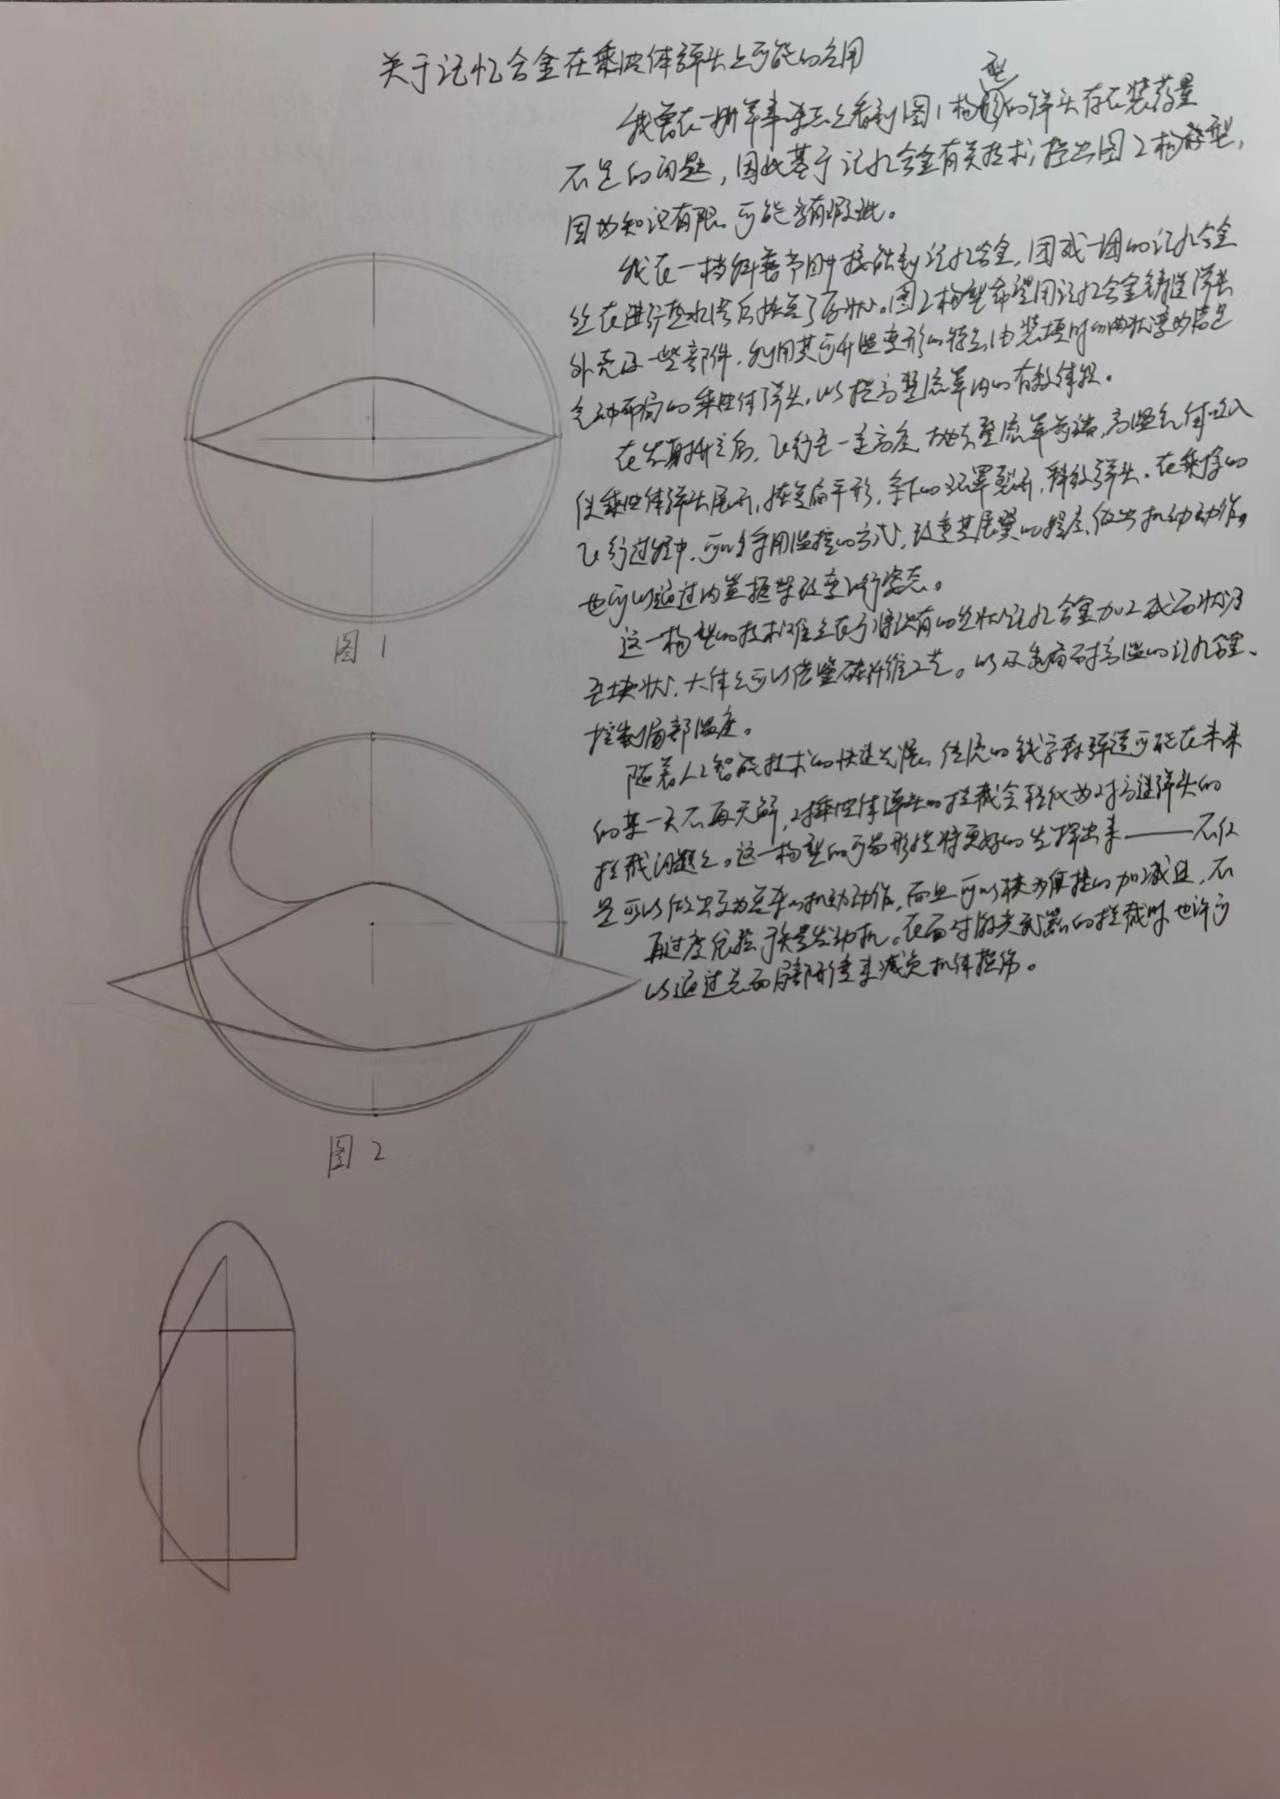 关于记忆合金在乘波体弹头上可能的应用
型
我曾在一册军事杂志上看到图1构的弹头存在装药量
不足的问题，因此基于记忆合金有关技术，提出图2构型，
因为知识有限，可能会有瑕疵。
我在一档科普节目中接触到记忆合金，团成一团的记忆合金
丝在进行热水浴后恢复了原状。图2构型希望用记忆合金铸造弹头
外壳及一些部件，利用其可升温变形的特点，由装填时的曲状变为满足
气动布局的乘波体弹头，以提高整流罩内的有效体积。
在发射升空后，飞行至一定高度，抛去整流罩前端，高温气体进入
使乘波体弹头展开，恢复扁平形，余下的环罩裂开，释放弹头。在乘余的
飞行过程中，可以采用温控的方式，改变其展翼的程度，做出机动动作，
也可以通过内置框架改变飞行姿态。
这一构型的技术难点在于将现有的丝状记忆合金加工成面状乃
至块状，大体上可以借鉴碳纤维工艺。以及制备耐高温的记忆合金、
控制局部温度。
随着人工智能技术的快速发展，传统的钱学森弹道可能在未来
的某一天不再无解，对乘波体弹头的拦截会转化为对高速弹头的
拦截问题上。这一构型的可变形性将更好的发挥出来——不仅
是可以做出更为复杂的机动动作，而且可以较为便捷的加减速，不
再过度依赖于矢量发动机。在面对激光武器的拦截时，也许可
以通过表面局部形变来减免机体损伤。
图1
图2